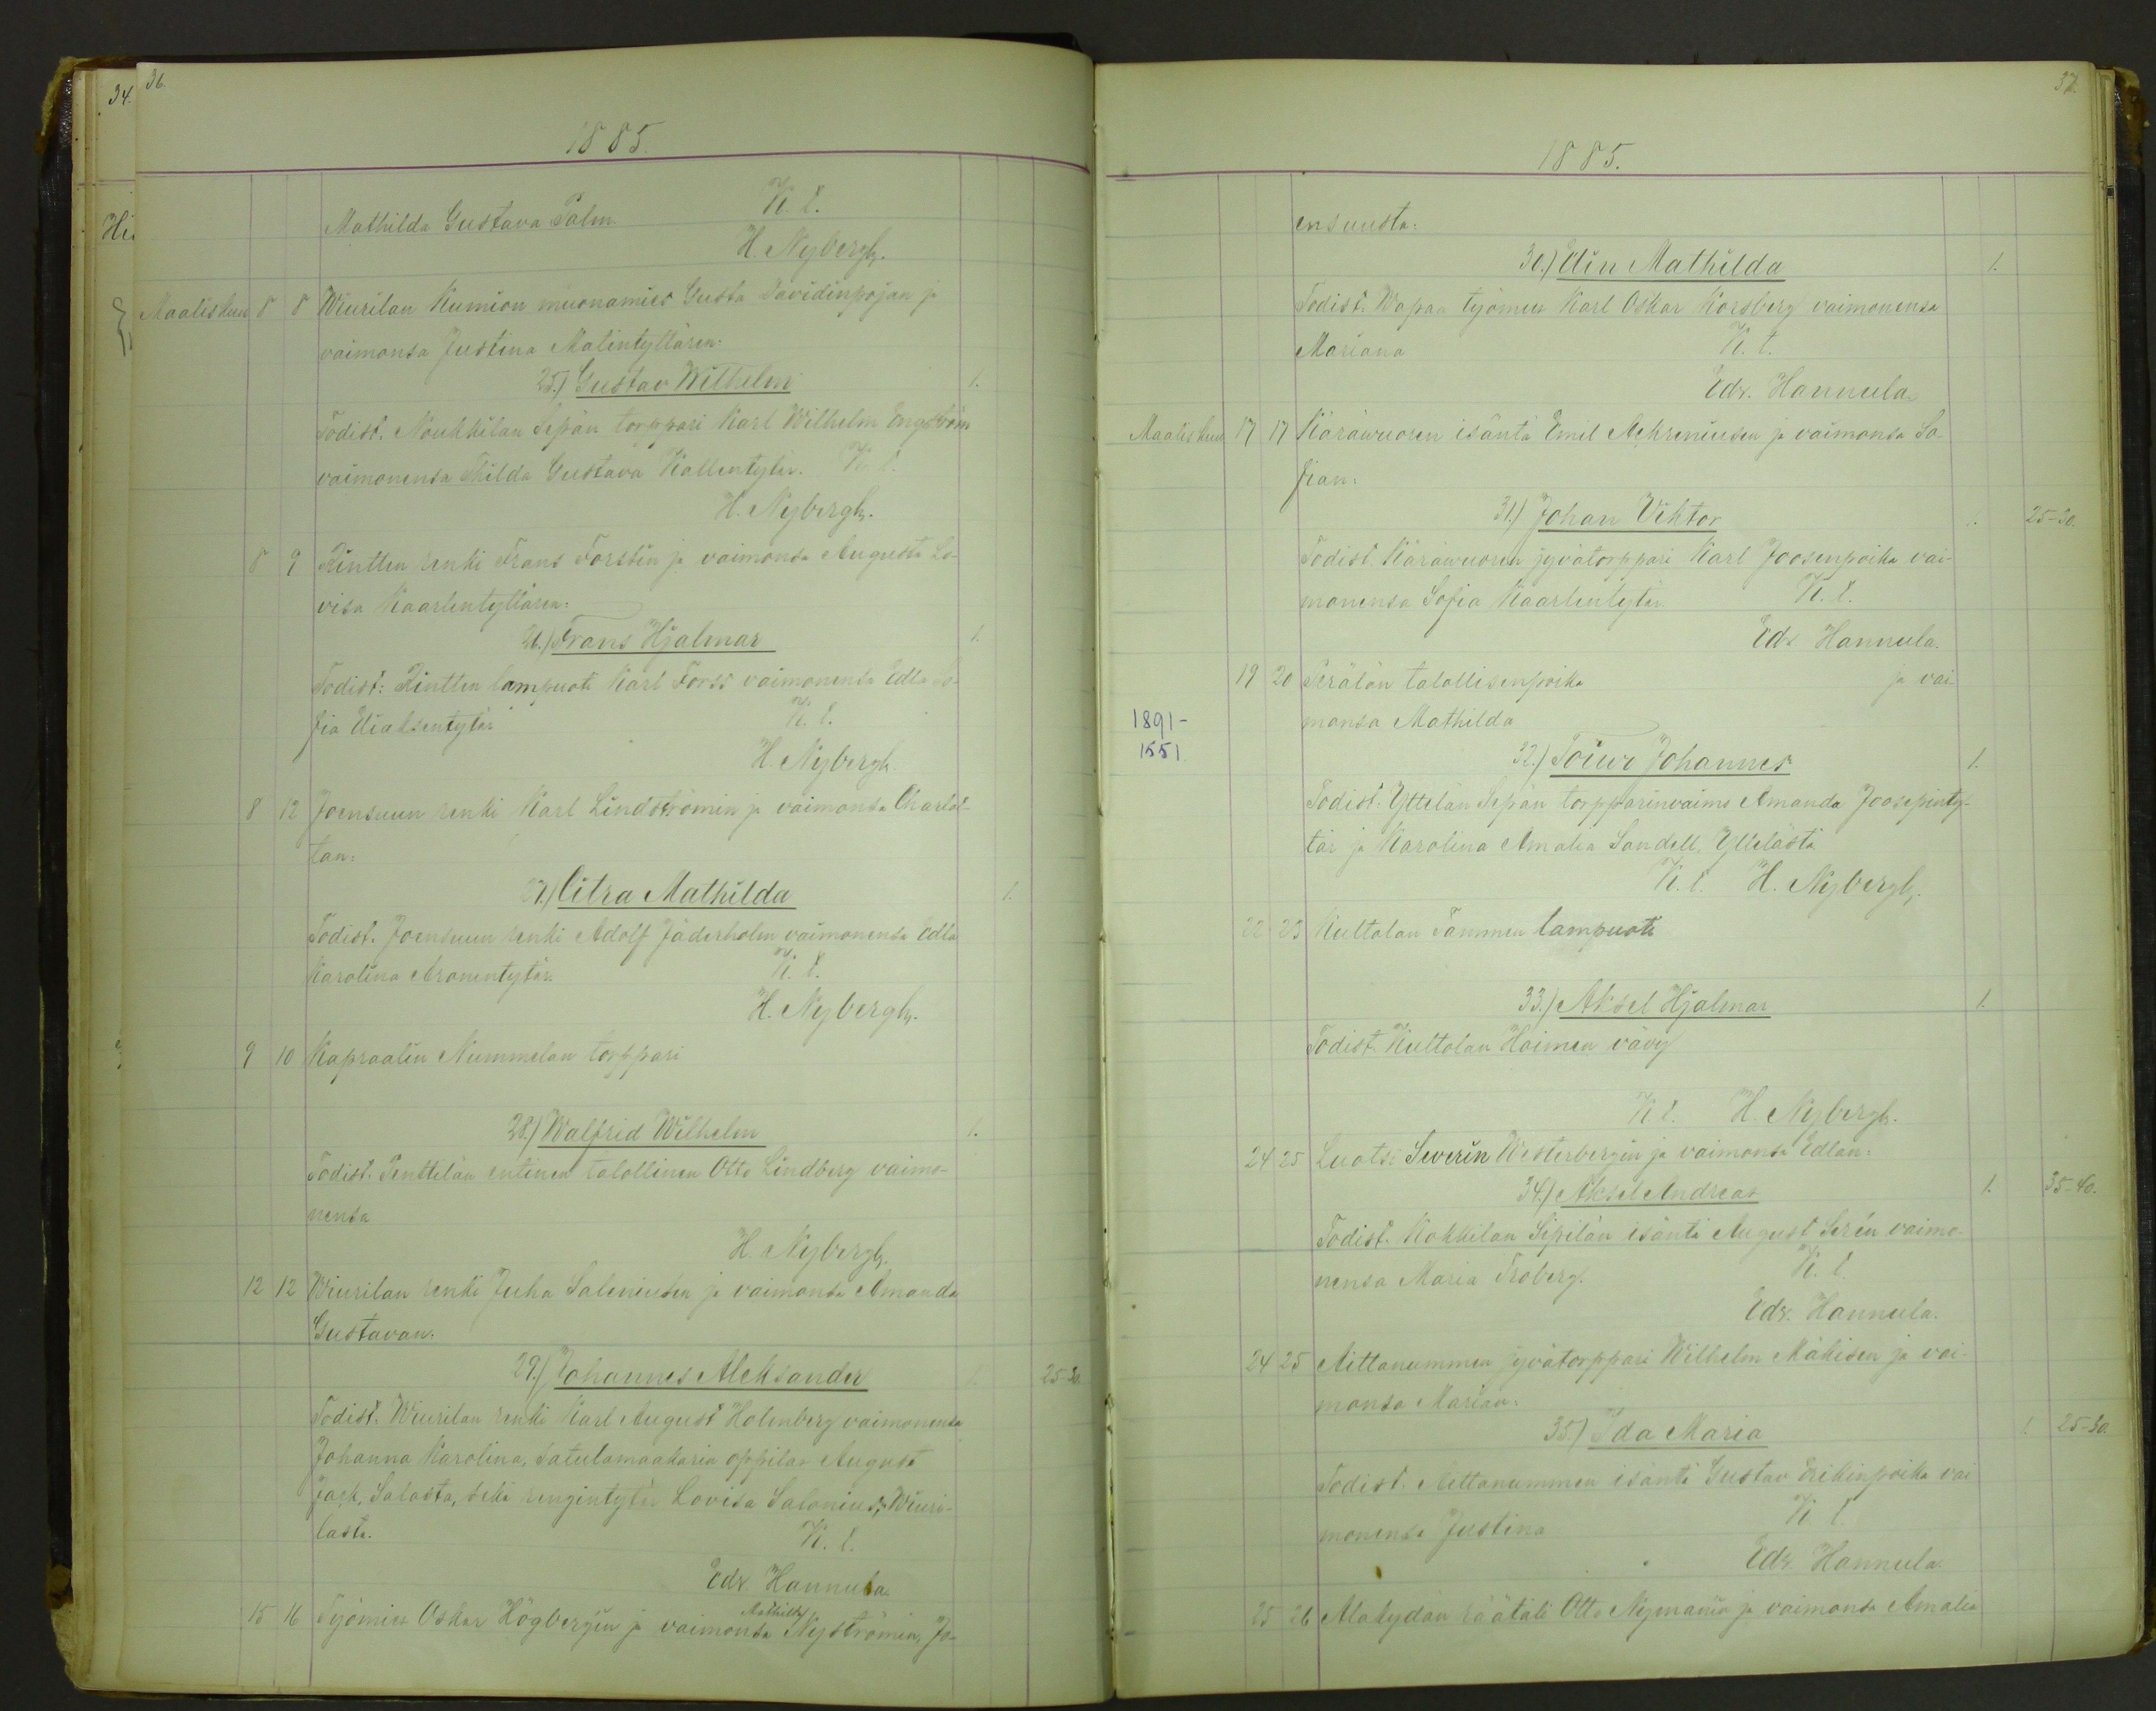 34.
36.
1885.
Mathilda Gustava Palm K. k.
H. Nybergh.
Maaliskuu 8 8 Wiurilan Kumion muonamies Gusta Davidinpojan ja
vaimonsa Justina Matintyttären.
25.) Gustav Wilhelm 1.
Todist. Noukkilan Sepän torppari Karl Wilhelm Engström
vaimonensa Thilda Gustava Kallentytär. K. k.
H. Nybergh.
8 9 Rintten renki Frans Forstin ja vaimonsa Augusta Lo-
visa Kaarlentyttären:
26.) Frans Hjalmar 1.
Todist: Rintten lampuoti Karl Forss vaimonensa Edla So-
fia Eliaksentytär K. k.
H. Nybergh.
8 12 Joensuun renki Karl Lindströmin ja vaimonsa Charlot-
tan:
27.) Citra Mathilda 1.
Todist. Joensuun renki Adolf Jäderholm vaimonensa Edla
Karolina Aronentytär. K. k.
H. Nybergh.
9 10 Kapraalin Nummelan torppari
28.) Walfrid Wilhelm 1.
Todist. Penttilän entinen talollinen Otto Lindberg vaimo-
nensa
H. Nybergh.
12 12 Wiurilan renki Juha Saleniuksen ja vaimonsa Amanda
Gustavan.
29.) Johannes Aleksander 1. 25-30
Todist. Wiurilan renki Karl August Holmberg vaimonensa
Johanna Karolina, satulamaakarin oppilas August
Jack, Salosta, sekä rengintytär Lovisa Salonius, Wiuri-
lasta. K. k.
Edv Hannula
15 16 Työmies Oskar Högbergin ja vaimonsa Mathilda Nyströmin, Jo-
37.
1885.
ensuusta:
30.) Elin Mathilda 1.
Todist. Wapaa työmies Karl Oskar Korsberg vaimonensa
Mariana K. k.
Edv. Hannula
Maaliskuu 17 17 Käräwuoren isäntä Emil Aehreniusen ja vaimonsa So-
fian:
31.) Johan Viktor 25-30.
Todist. Käräwuoren jyvätorppari Karl Joosenpoika vai-
monensa Sofia Kaarlentytär K. k.
Edv Hannula.
19 20 Perälän talollisenpoika ja vai-
monsa Mathilda
1891-
1551
32.) Toiwo Johannes 1.
Todist. Yttelän Sepän torpparinvaimo Amanda Joosepinty-
tär ja Karolina Amalia Sandell, Yttelästä
K. k. H. Nybergh.
22 23 Kultolan Tammen lampuoti
33.) Aksel Hjalmar 1.
Todist. Kultolan Hoimen vävy
K. k. H. Nybergh.
24 25 Luotsi Severin Westerbergin ja vaimonsa Edlan:
34.) Aksel Andreas 1. 35-40.
Todist. Kokkilan Sipilän isäntä August Serén vaimo-
nensa Maria Troberg. K. k.
Edv. Hannula.
24 25 Aittanummen jyvätorppari Wilhelm Mäkisen ja vai-
monsa Marian:
35.) Ida Maria 1. 25-30.
Todist. Aittanummen isäntä Gustav Erikinpoika vai
monensa Justina K. k.
Edv Hannula
25 26 Alakydän räätäli Otto Nymanin ja vaimonsa Amalia